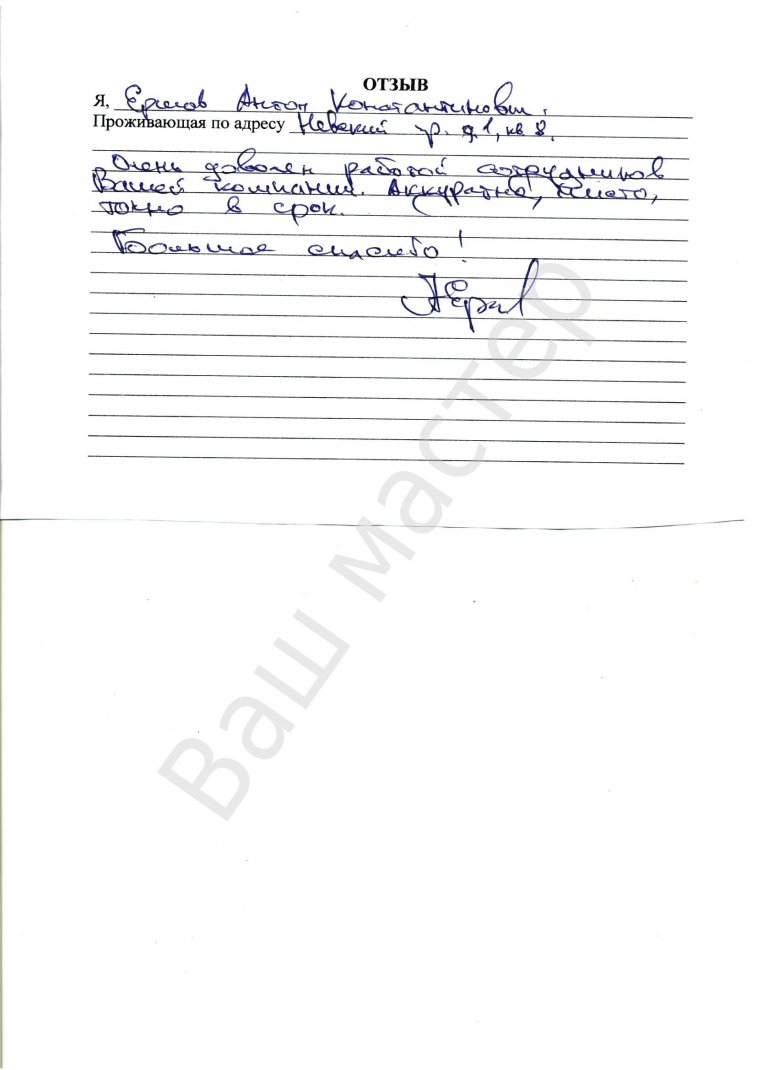 ОТЗЫВ
Я, Ершов Антон Константинович.
Проживающая по адресу Невский пр. д.1, кв 8.
Очень доволен работой сотрудников
Вашей компании. Аккуратно, чисто,
точно в срок.
Большое спасибо!
Ваш мастер